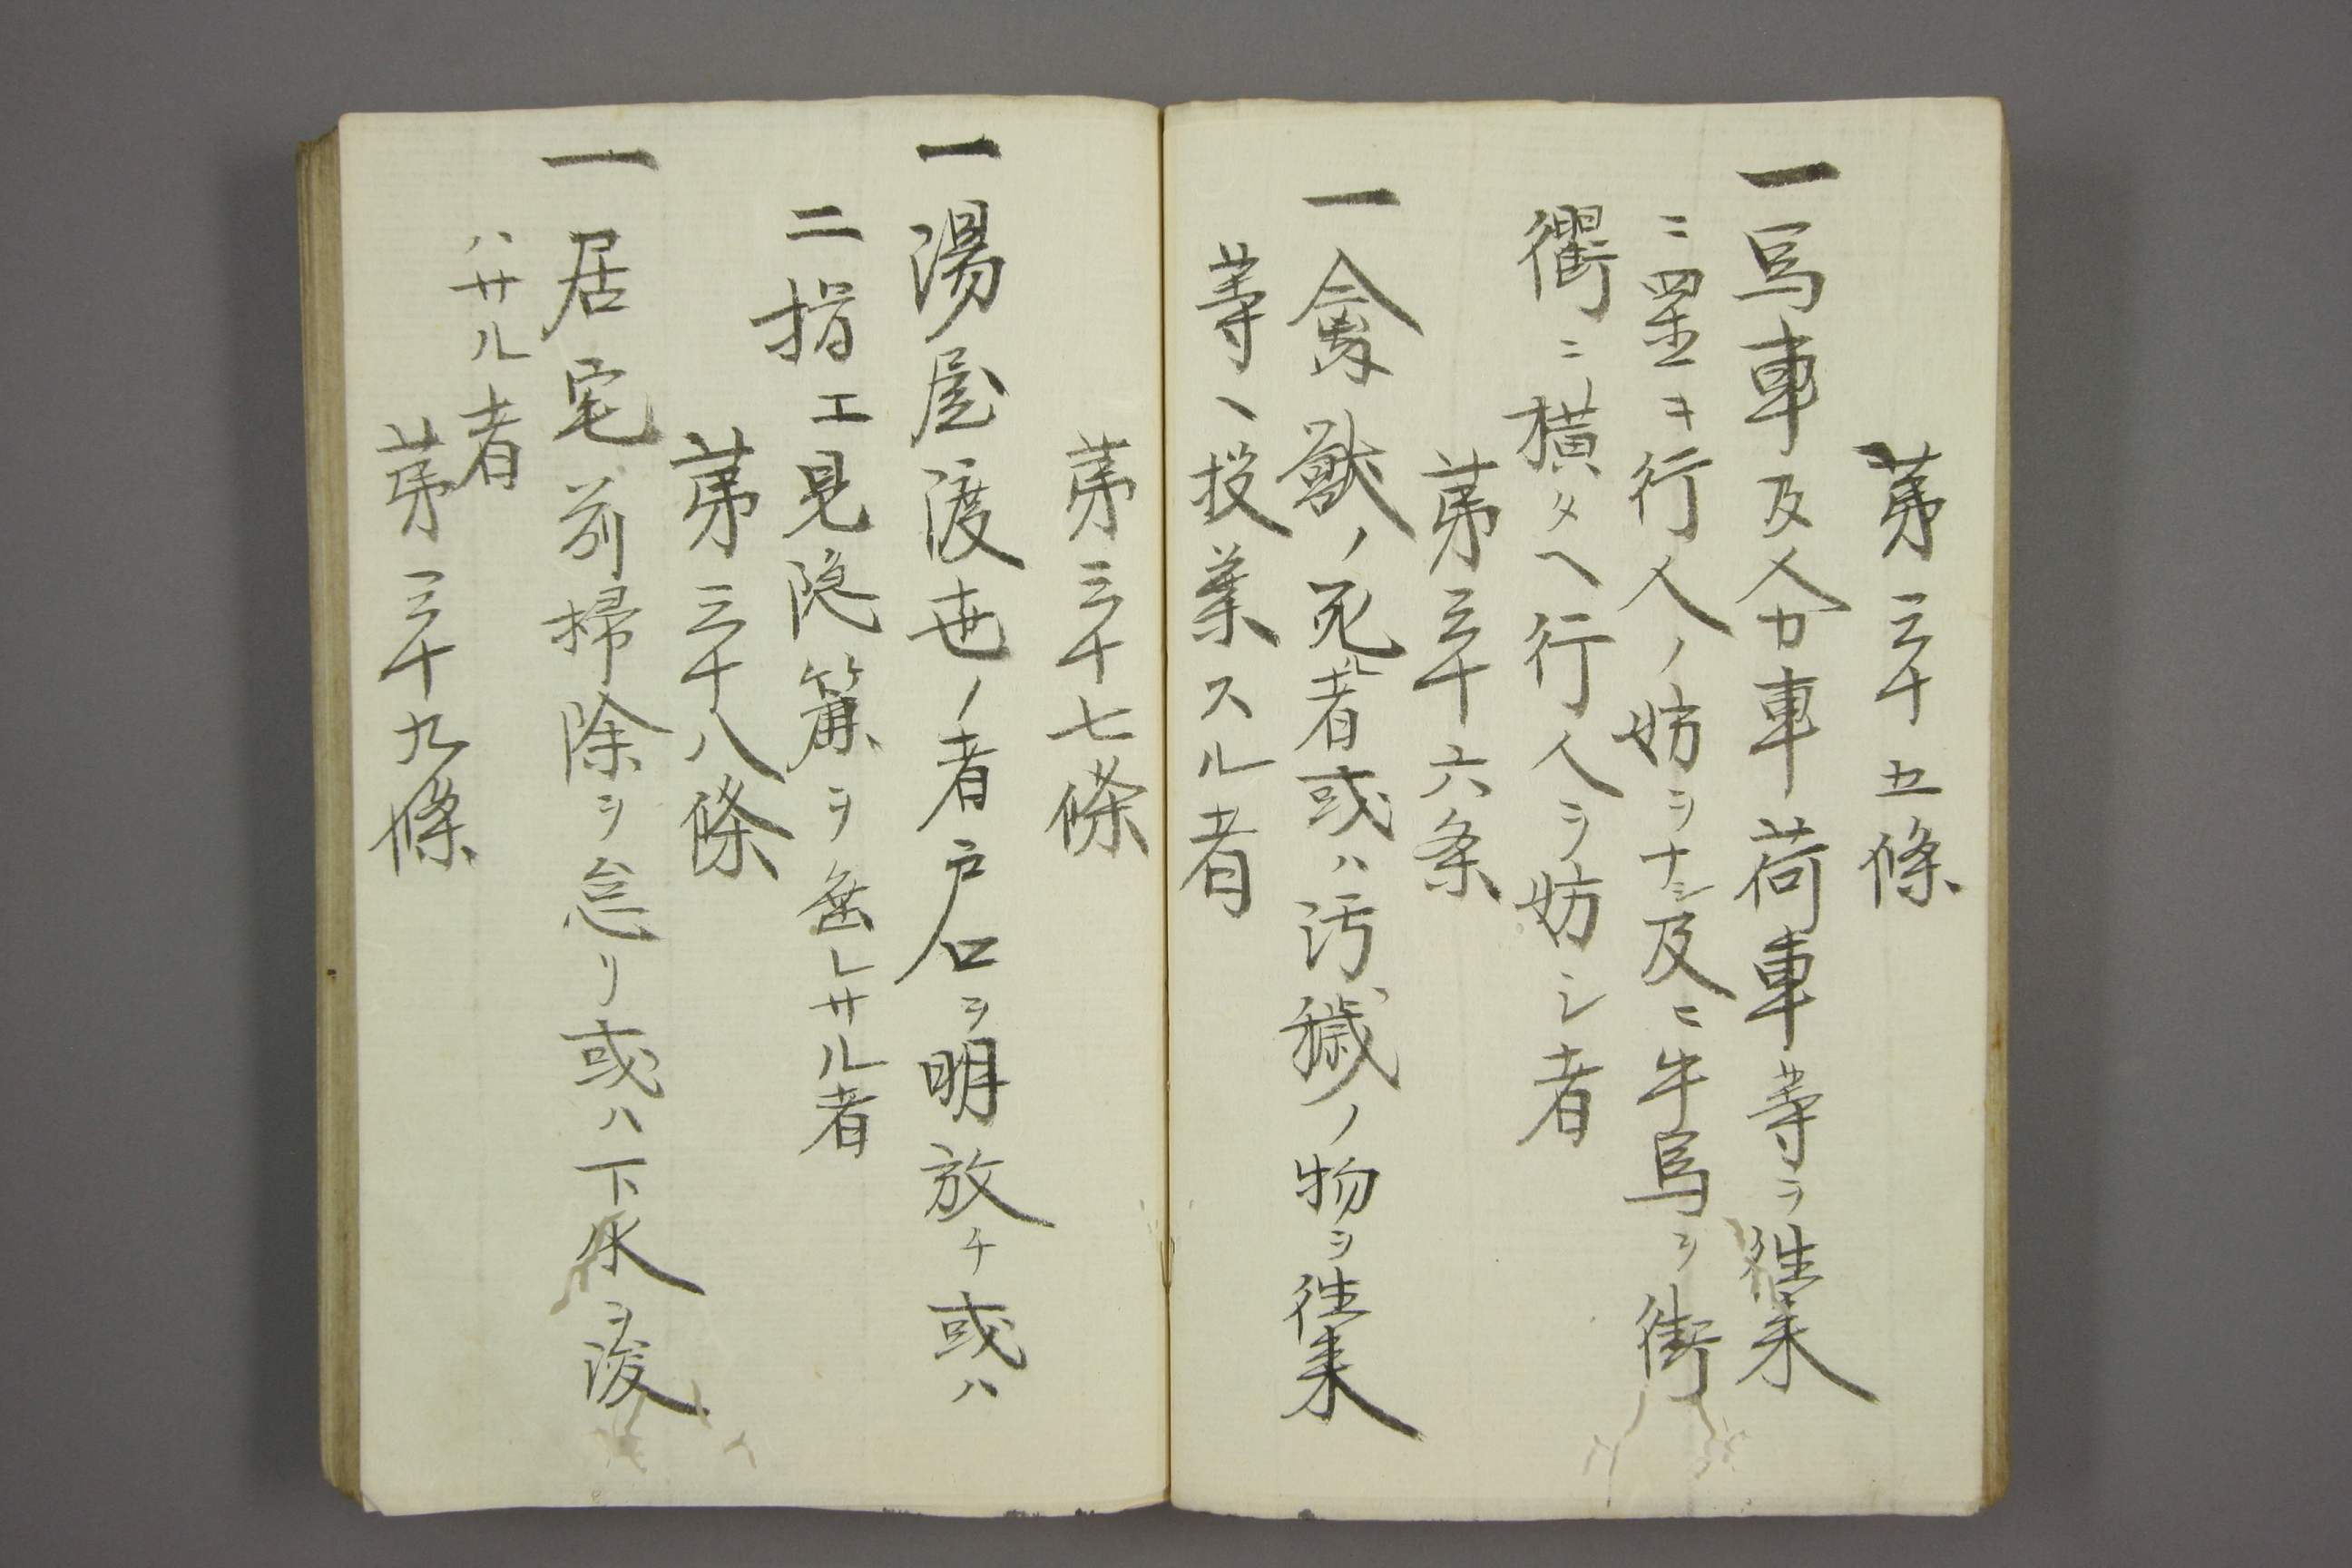 第三十五條
一馬車及人力車荷車等ヲ徃来
ニ置キ行人ノ妨ヲナシ及ニ牛馬ヲ街
衢ニ横タヘ行人ヲ妨シ者
第三十六条
一禽獣ノ死者或ハ汚穢ノ物ヲ徃来
等ヘ投棄スル者
第三十七條
一湯屋渡世ノ者戸口ヲ明放チ或ハ
二揩エ見隠簾ヲ垂レサル者
第三十八條
一居宅前掃除ヲ怠リ或ハ下水ヲ浚
ハサル者
第三十九條